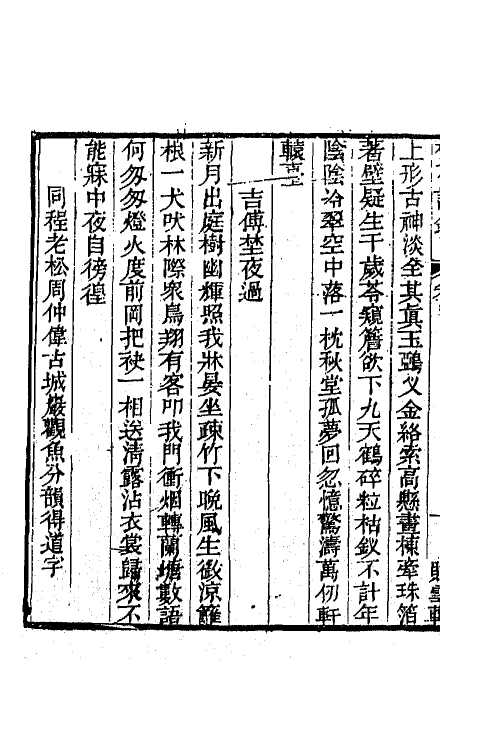 上形古神淡全其眞玉鵶义金絡索高懸畫棟牽珠箔
著壁疑生千歲苓窺簷欲下九天鶴碎粒枯釵不計年
陰陰冷翠空中落一枕秋堂孤夢回忽憶驚濤萬仞軒
轅臺
吉傅埜夜過
新月出庭樹幽輝照我牀晏坐疎竹下晚風生微涼籬
根一犬吠林際衆鳥翔有客叩我門衝烟轉蘭塘數語
何匆匆燈火度前岡把袂一相送淸露沾衣裳歸來不
能寐中夜自徬徨
同程老松周仲偉古城巖觀魚分韻得道字